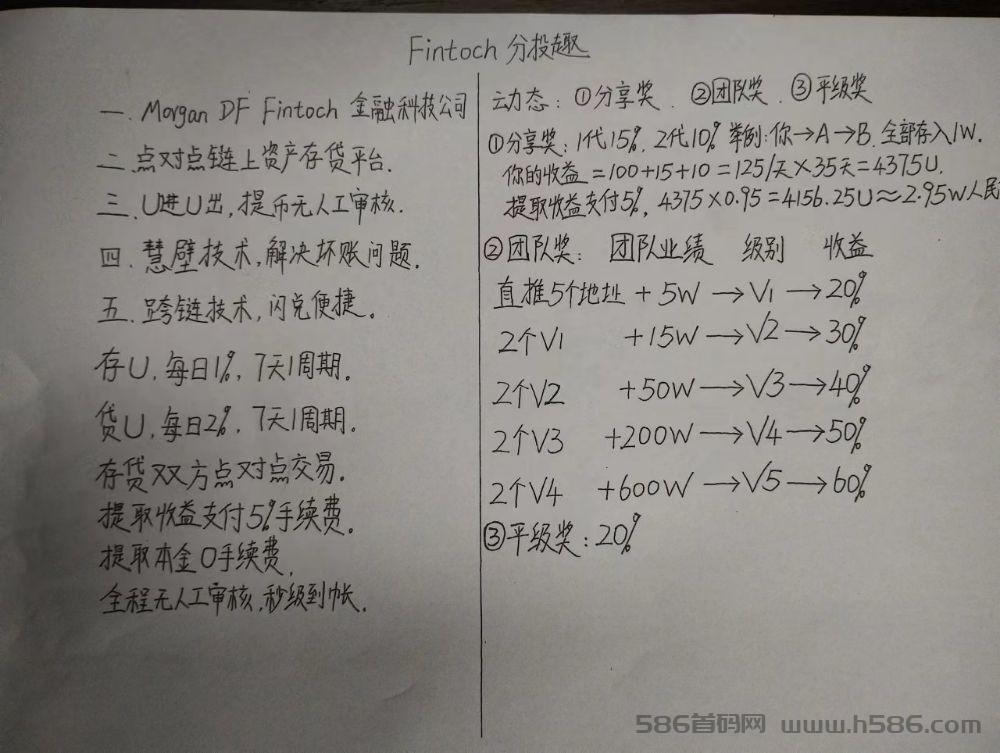 Fintoch 分投趣
一. Morgan DF Fintoch 金融科技公司
二.点对点链上资产存贷平台.
三.U进U出,提币无人工审核.
四.慧壁技术,解决坏账问题.
五.跨链技术,闪兑便捷。
存U,每日1%,7天1周期。
贷U,每日2%,7天1周期.
存贷双方点对点交易.
提取收益支付5%手续费.
提取本金0手续费,
全程无人工审核,秒级到帐.
动态:①分享奖.②团队奖.③平级奖
①分享奖:1代15%,2代10% 举例:你→A→B.全部存入1W.
你的收益=100+15+10=125/天×35天=4375U.
提取收益支付5%,4375×0.95=4156.25U≈2.95W人民
②团队奖: 团队业绩 级别 收益
直推5个地址+5W→V1→20%
2个V1 +15W→V2→30%
2个V2 +50W→V3→40%
2个V3 +200W→V4→50%
2个V4 +600W→V5→60%
③平级奖:20%
586首码网 www.h586.com